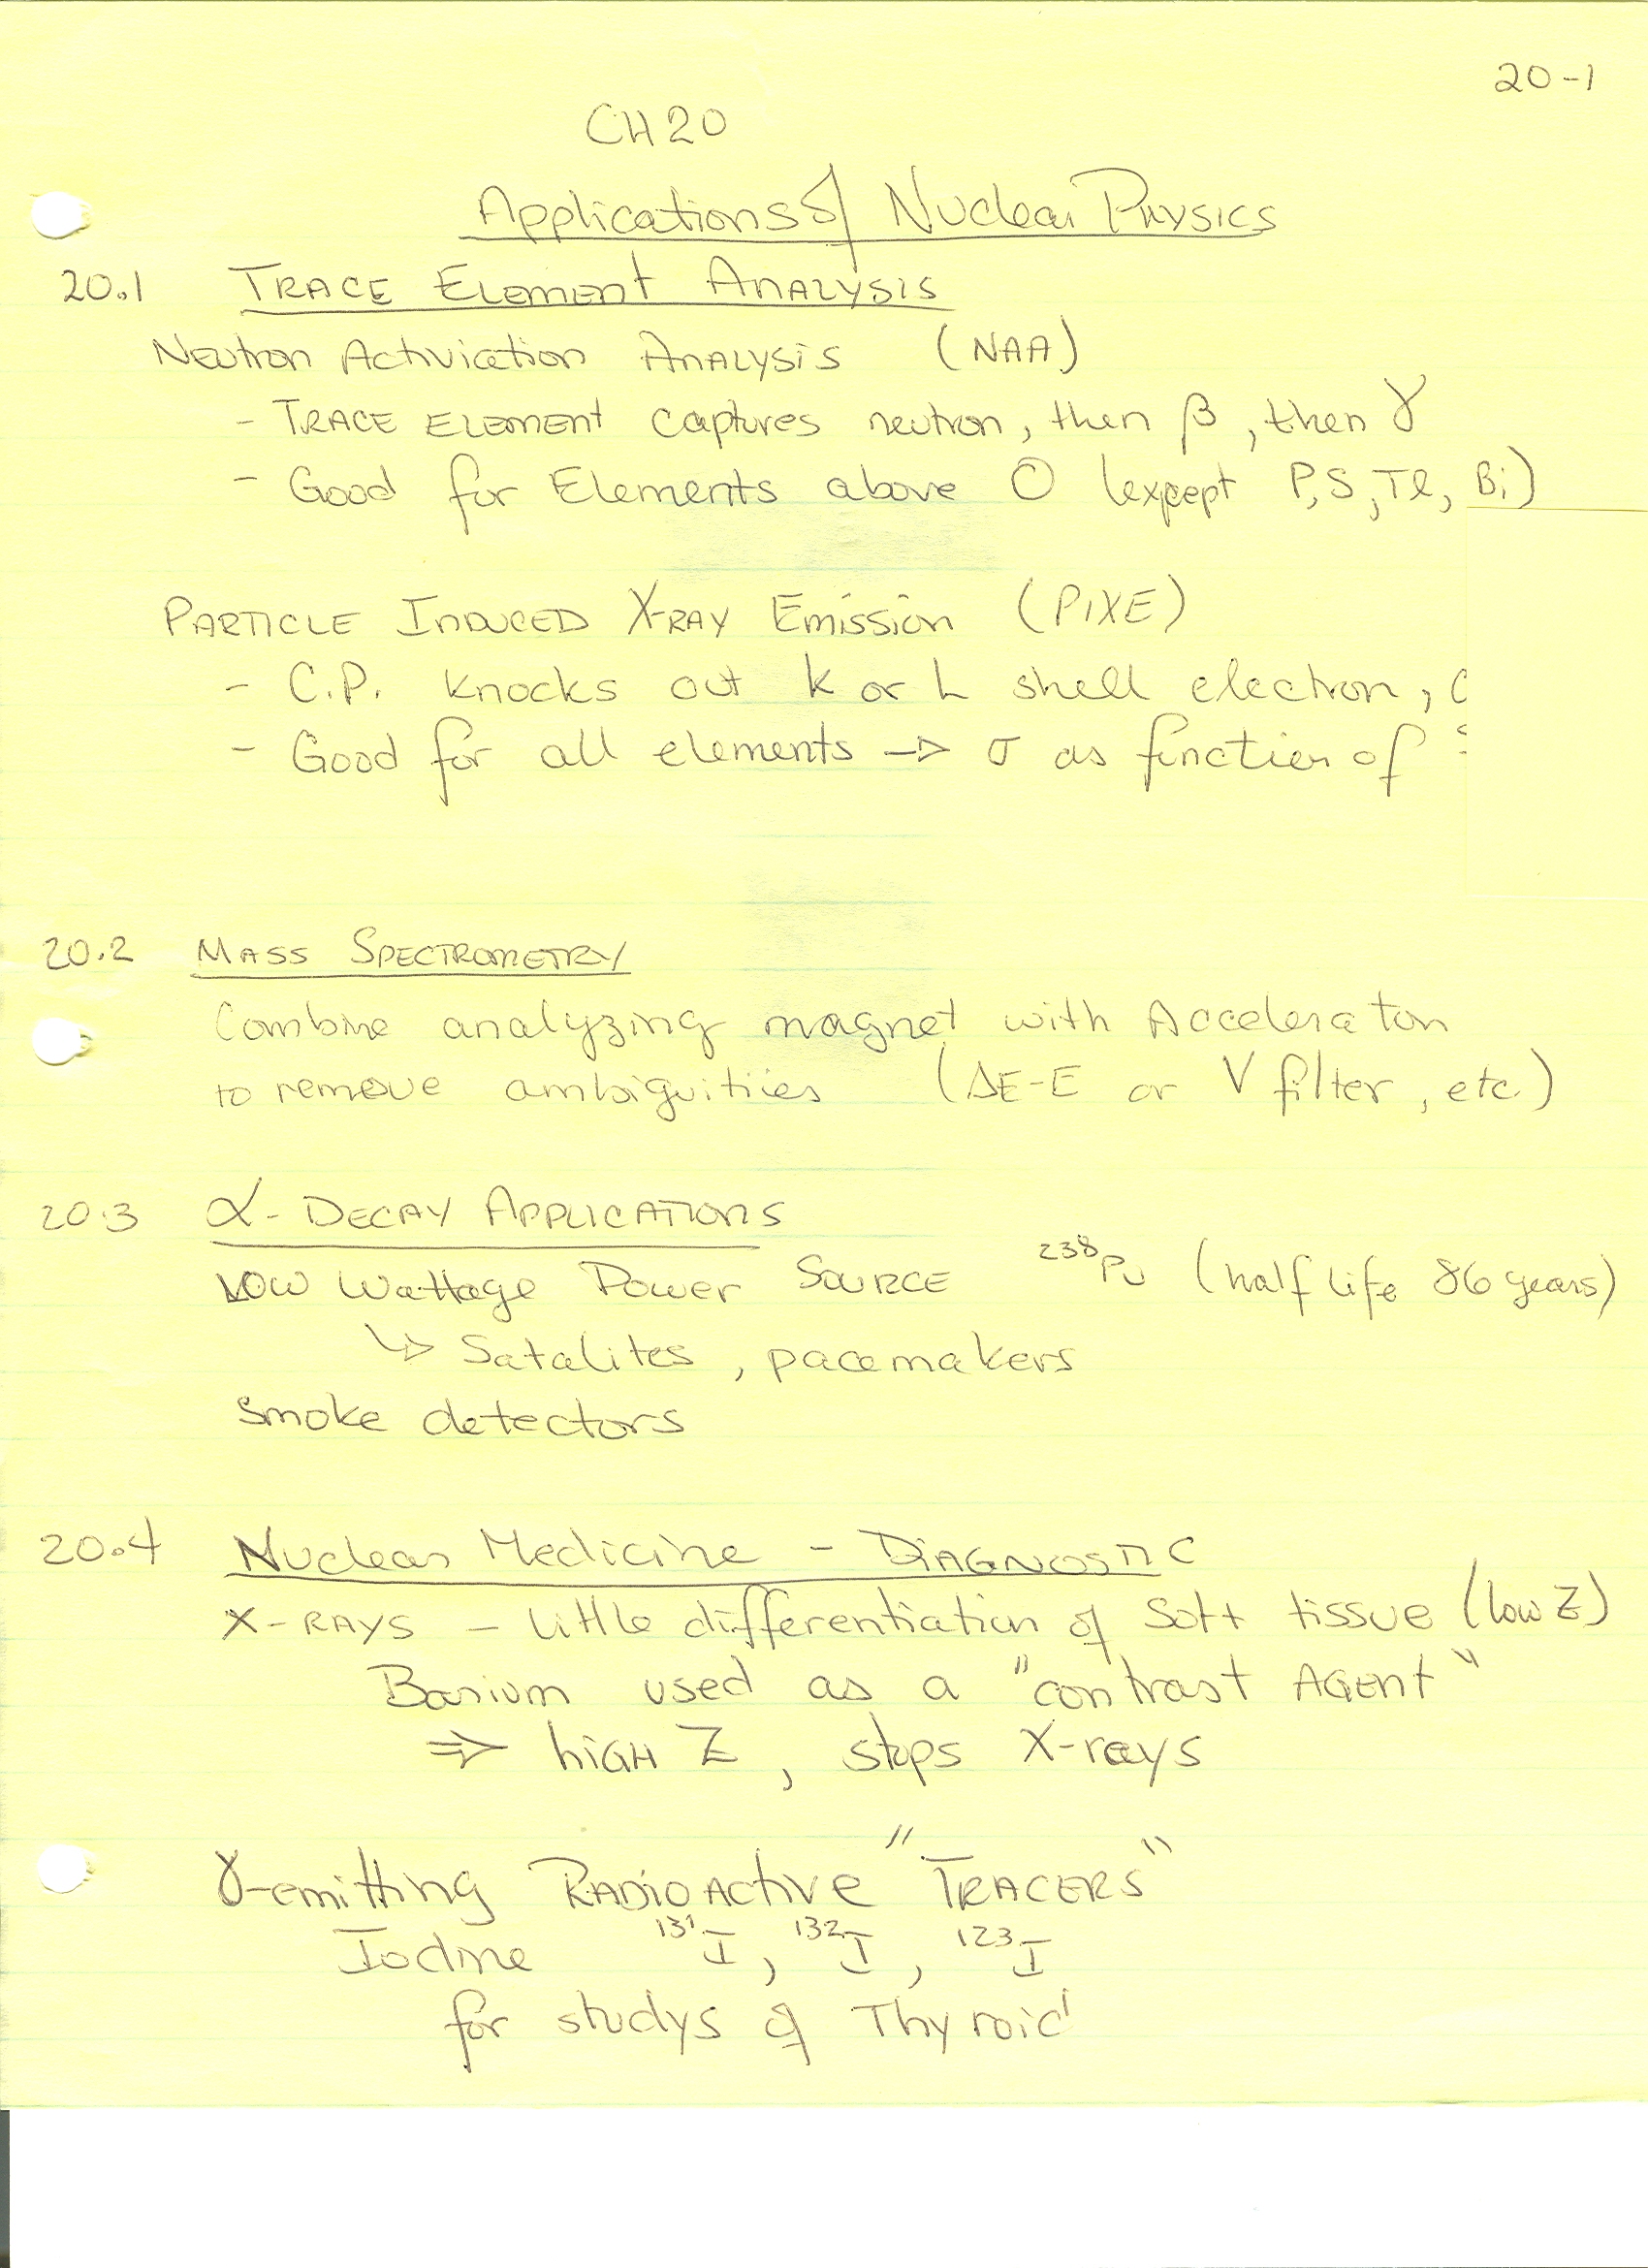 20-1
CH 20
Applications of Nuclear Physics
20.1 TRACE ELEMENT ANALYSIS
Neutron Activication ANALYSIS (NAA)
- TRACE ELEMENT captures neutron, then β, then γ
- Good for Elements above O (except P, S, Tl, Bi)
PARTICLE INDUCED X-RAY Emission (PIXE)
- C.P. knocks out K or L shell electron,
- Good for all elements → σ as function of
20.2 MASS SPECTROMETRY
Combine analyzing magnet with Accelerator
to remove ambiguitiies (ΔE-E or V filter, etc)
20.3 α-DECAY APPLICATIONS
LOW Wattage Power SOURCE ²³⁸Pu (half life 86 years)
↳ Satalites, pacemakers
Smoke detectors
20.4 Nuclear Medicine - DIAGNOSTIC
X-RAYS - little differentiation of Soft tissue (low Z)
Barium used as a "contrast AGENT"
⇒ high Z, stops X-rays
γ-emitting RADIOACtive "TRACERS"
Iodine ¹³¹I, ¹³²I, ¹²³I
for studys of Thyroid